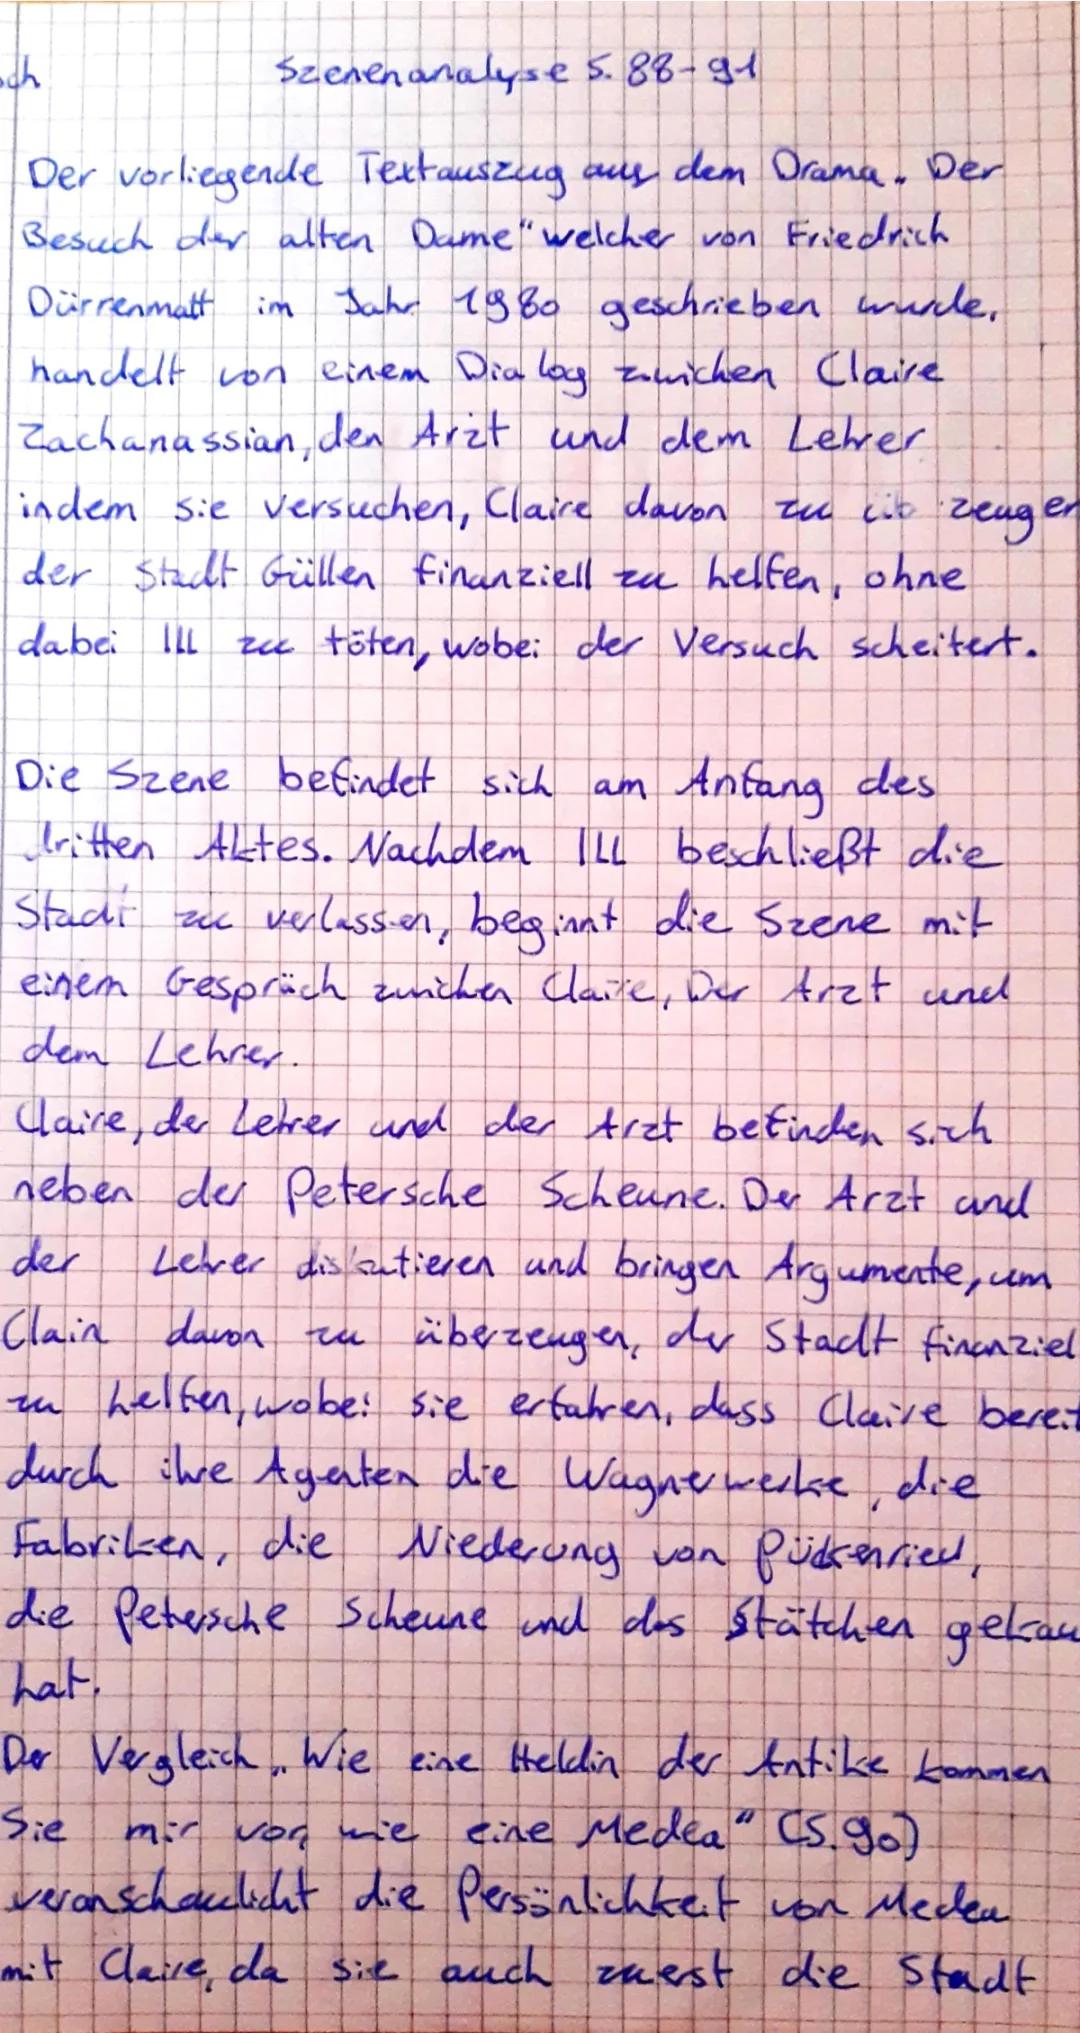 sch
Szenenanalyse S. 88-91
Der vorliegende Textauszug aus dem Drama „Der
Besuch der alten Dame" welcher von Friedrich
Dürrenmatt im Jahr 1980 geschrieben wurde,
handelt von einem Dialog zwichen Claire
Zachanassian, den Arzt und dem Lehrer
indem sie versuchen, Claire davon zu
der Stadt Güllen finanziell zu helfen, ohne
dabei Ill zu töten, wobei der Versuch scheitert.
Die Szene befindet sich am Anfang des
dritten Aktes. Nachdem Ill beschließt die
Stadt zu verlassen, beginnt die Szene mit
einem Gespräch zwichen Claire, Der Arzt und
dem Lehrer.
Claire, der Lehrer und der Arzt befinden sich
neben der Petersche Scheune. Der Arzt und
der Lehrer diskutieren und bringen Argumente, um
Clair davon zu überzeugen, der Stadt finanziel
zu helfen, wobei sie erfahren, dass Claire bereit
durch ihre Agenten die Wagnerwerke, die
Fabriken, die Niederung von Pückenried,
die Petersche Scheune und das Stätchen gekau
hat.
Der Vergleich „Wie eine Heldin der Antike kommen
Sie mir vor, wie eine Medea" (S. 90)
veranschaulicht die Persönlichkeit von Medea
mit Claire, da sie auch zuerst die Stadt